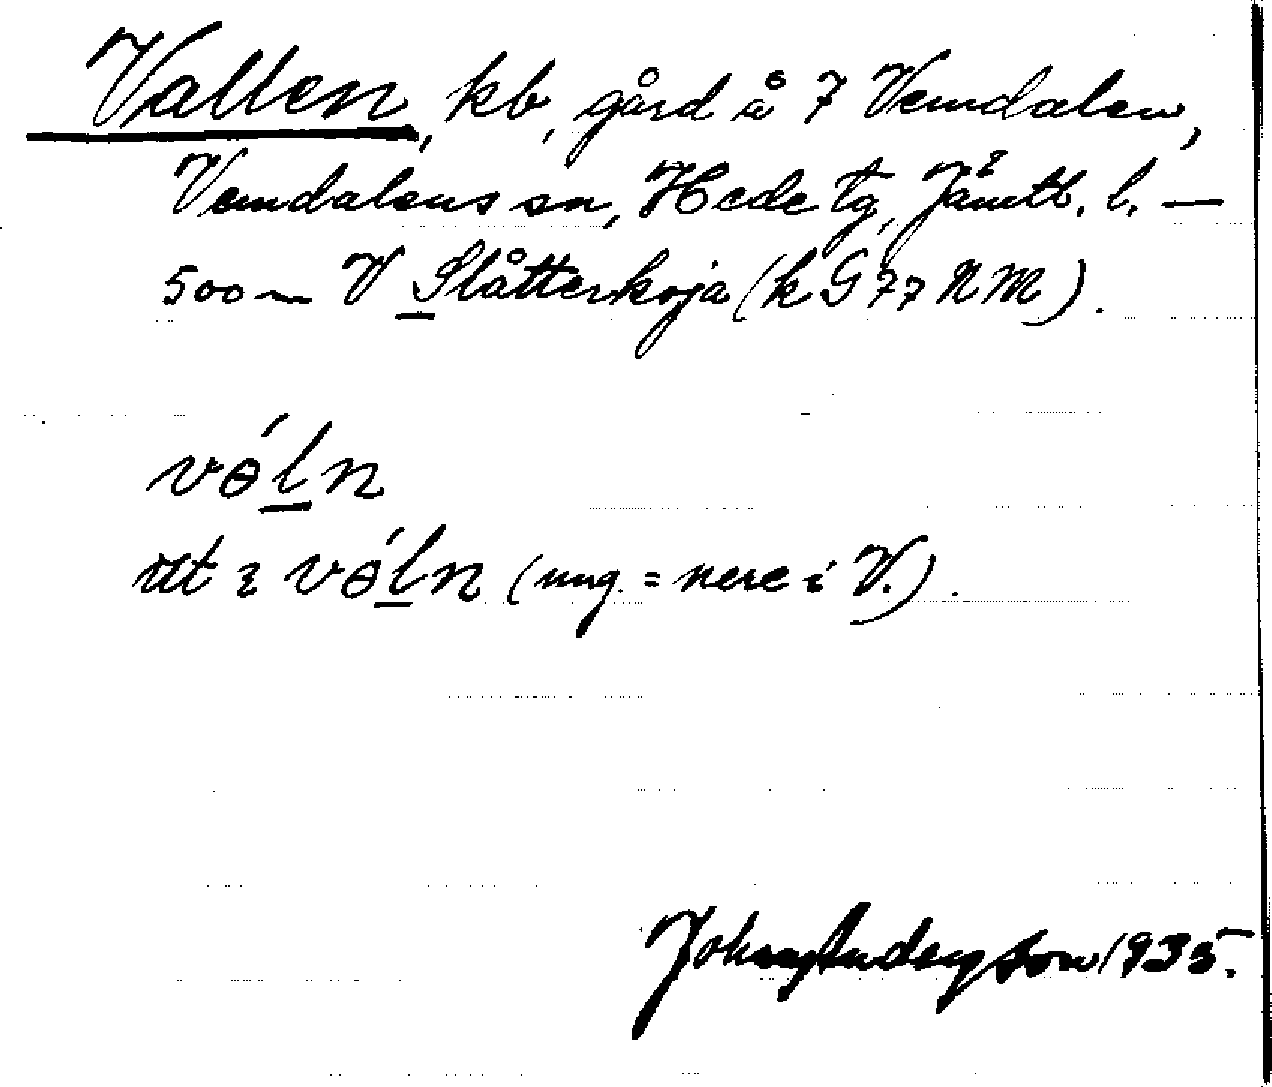 Vallen, kb, gård å 7 Vemdalen,
Vemdalens sn, Hede tg, Jämtl. l. —
500 m V Slåtterkoja (k G 77 N M).
vɵ́ln
ut i vɵ́ln (ung. = nere i V.).
Johny Anderson 1935.